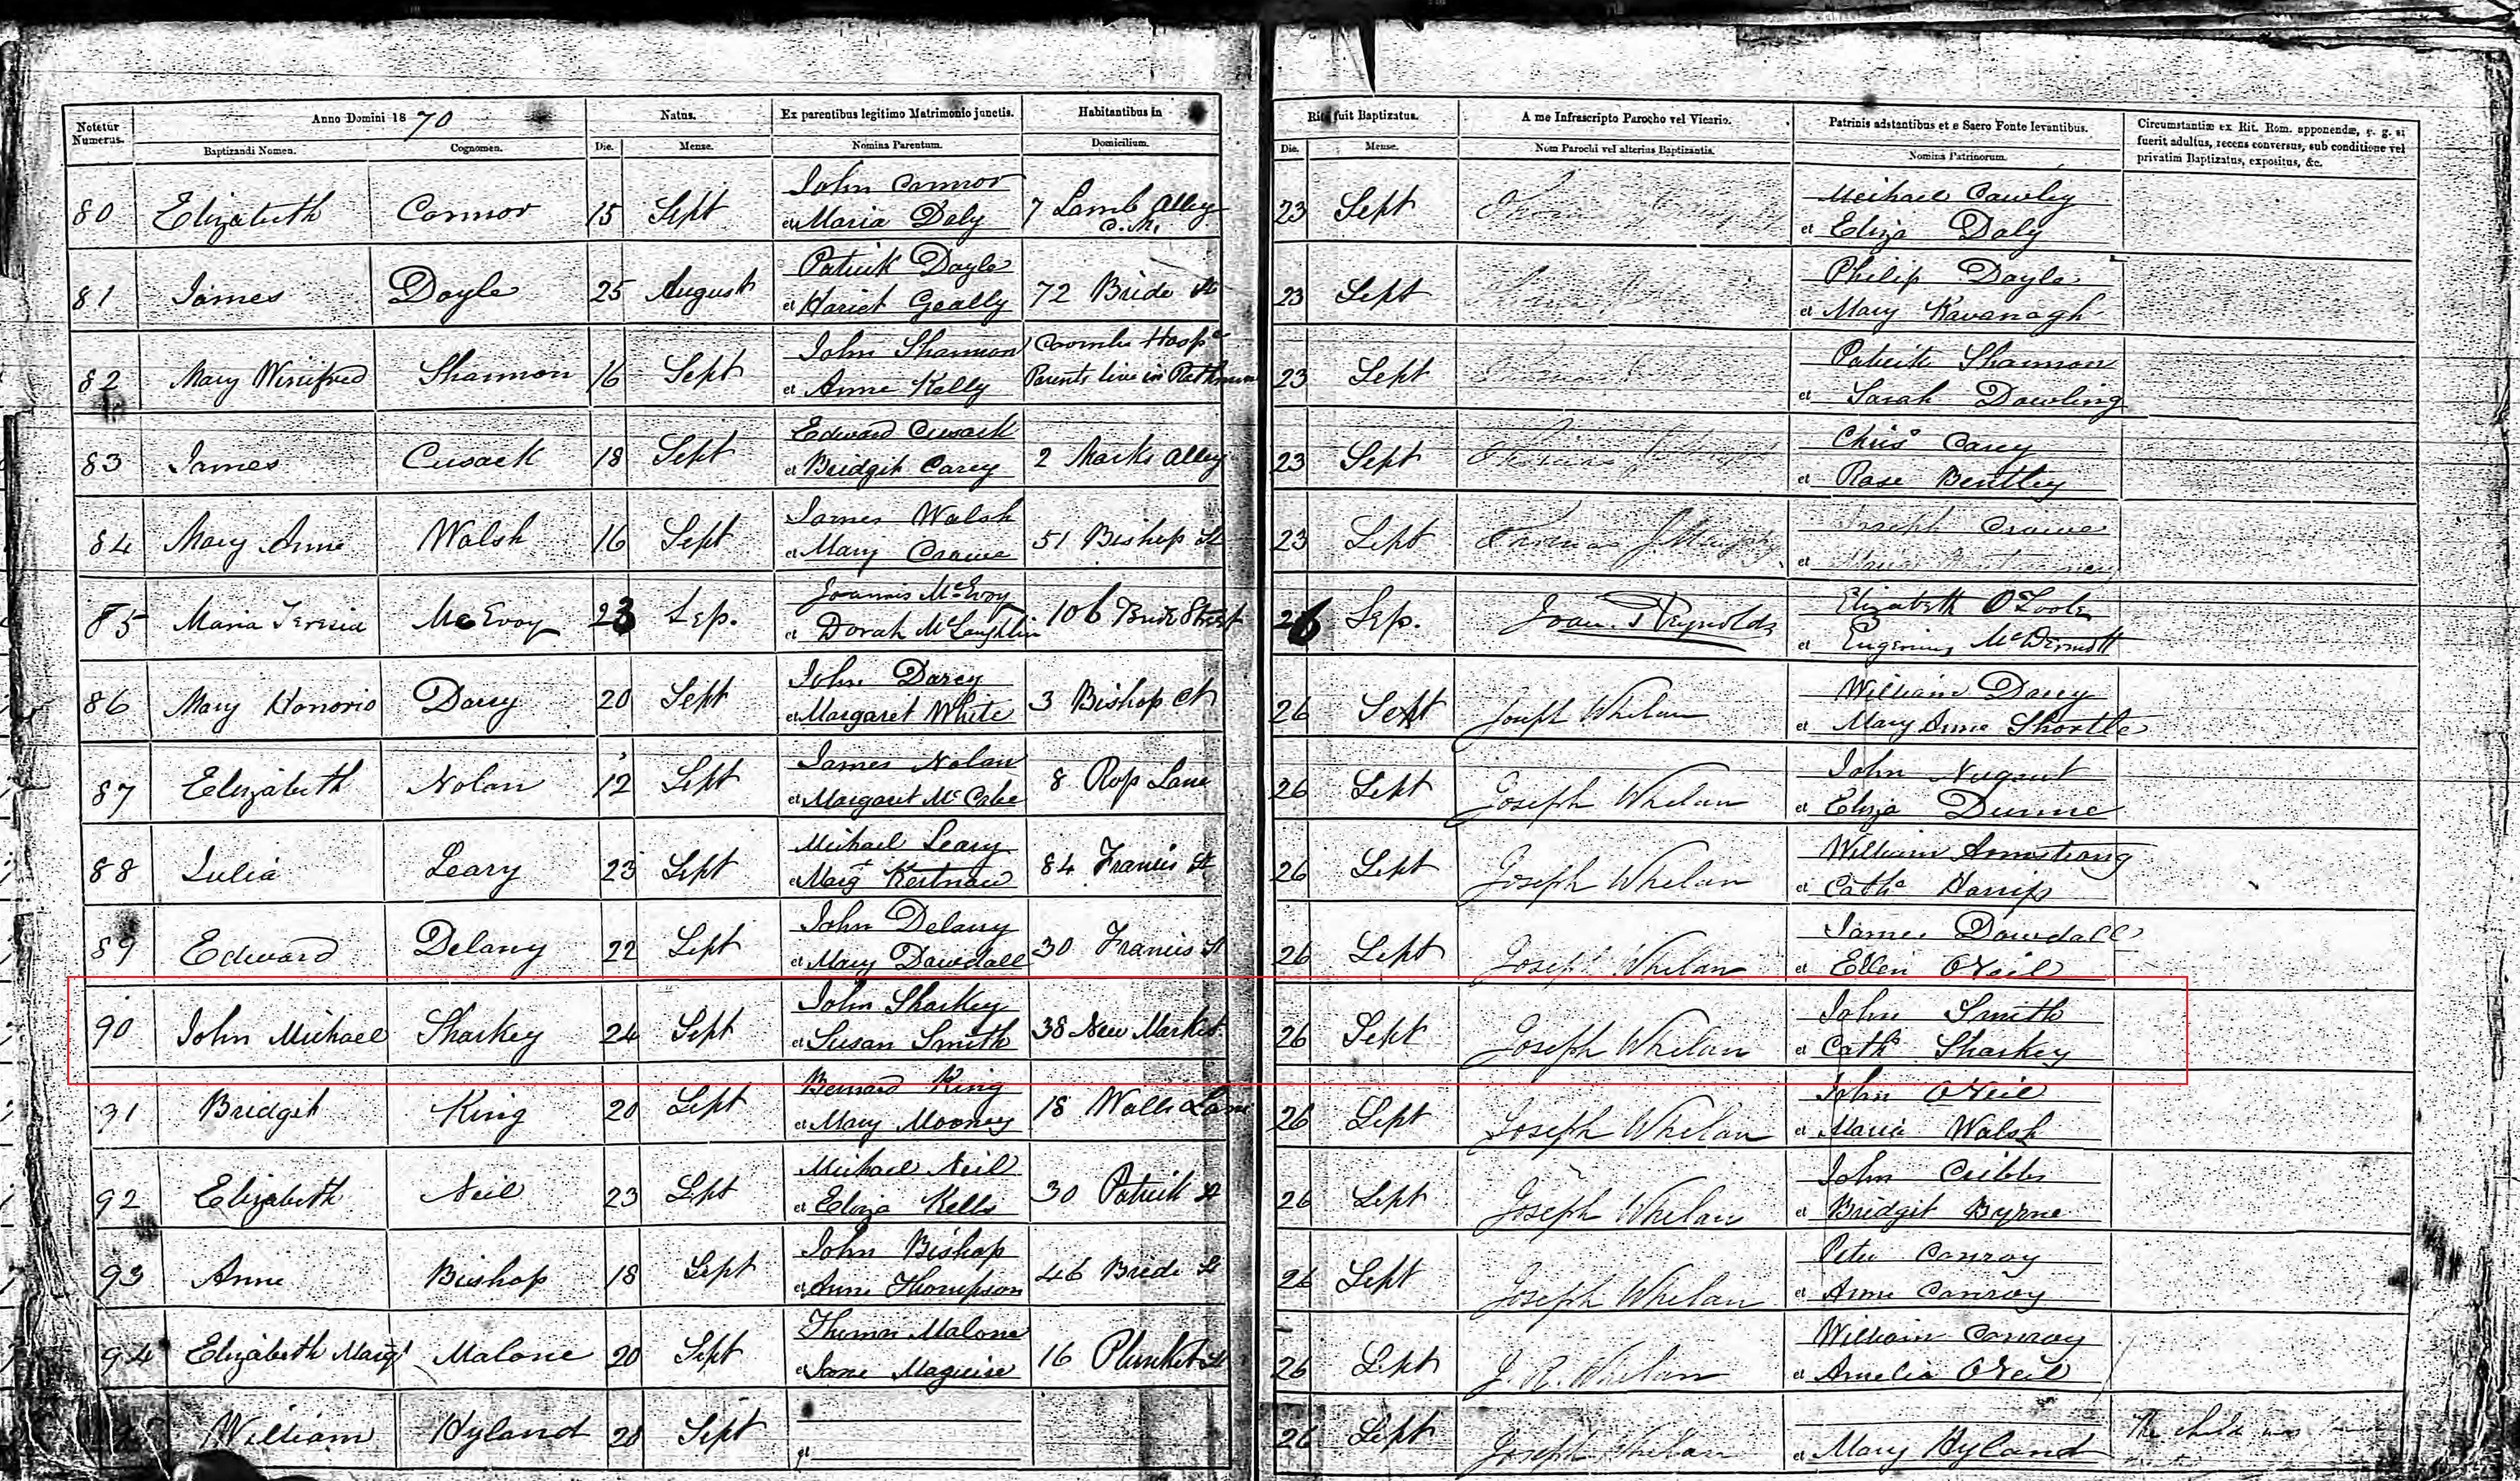 Notetur Numerus.
Anno Domini 1870
Baptizandi Nomen.
Cognomen.
Natus.
Die.
Mense.
Ex parentibus legitimo Matrimonio junctis.
Nomina Parentum.
Habitantibus in
Domicilium.
Rite fuit Baptizatus.
Die.
Mense.
A me Infrascripto Parocho vel Vicario.
Nom Parochi vel alterius Baptizantis.
Patrinis adstantibus et e Sacro Fonte levantibus.
Nomina Patrinorum.
Circumstantiæ ex Rit. Rom. apponendæ, v. g. si
fuerit adultus, recens conversus, sub conditione vel
privatim Baptizatus, expositus, &c.
John Connor Meihael Cawley
80 Elizabeth Connor 15 Sept et Maria Daly 7 Lamb Alley 23 Sept et Eliza Daly
C.M.
Patrick Doyle Philip Doyle
81 James Doyle 25 August et Hariet Geally 72 Bride St 23 Sept et Mary Kavanagh
John Shannon Coombe Hospl Patrick Shannon
82 Mary Winifred Shannon 16 Sept et Anne Kelly Parents live in 23 Sept et Sarah Dowling
Edward Cusack Chriss Carey
83 James Cusack 18 Sept et Bridgit Carey 2 Marks Alley 23 Sept Thomas et Rose Bentley
James Walsh Joseph Crowe
84 Mary Anne Walsh 16 Sept et Mary Crowe 51 Bishop St 23 Sept Thomas J Murphy et Maria
Joannis McEvoy Elizabeth O'Toole
85 Maria Teresia McEvoy 23 Sep. et Dorah McLaughlin 106 Bride Street 26 Sep. Joan. Reynolds et Eugenius McDermott
John Darcy William Darcy
86 Mary Honorio Darcy 20 Sept et Margaret White 3 Bishop Ct 26 Sept Joseph Whelan et Mary Anne Shortle
James Nolan John Nugent
87 Elizabeth Nolan 12 Sept et Margaret McCabe 8 Rop Lane 26 Sept Joseph Whelan et Eliza Dunne
Michael Leary William Armstrong
88 Julia Leary 23 Sept et Margt 84 Francis St 26 Sept Joseph Whelan et Cathe
John Delany James Dowdall
89 Edward Delany 22 Sept et Mary Dowdall 30 Francis St 26 Sept Joseph Whelan et Ellen ONeil
John Sharkey John Smith
90 John Michael Sharkey 24 Sept et Susan Smith 38 New Market 26 Sept Joseph Whelan et Cathe Sharkey
Bernard King John ONeil
91 Bridget King 20 Sept et Mary Mooney 18 Walls Lane 26 Sept Joseph Whelan et Maria Walsh
Michael Neil John Cribbs
92 Elizabeth Neil 23 Sept et Eliza Kells 30 Patrick St 26 Sept Joseph Whelan et Bridgit Byrne
John Bishop Peter Conroy
93 Anne Bishop 18 Sept et Anne Thompson 46 Bride St 26 Sept Joseph Whelan et Anne Conroy
Thomas Malone William Conroy
94 Elizabeth Margt Malone 20 Sept et Jane Maguire 16 Plunket St 26 Sept J. R. Whelan et Amelia ONeil
William Hyland 20 Sept et 26 Sept Joseph Whelan et Mary Hyland The child was